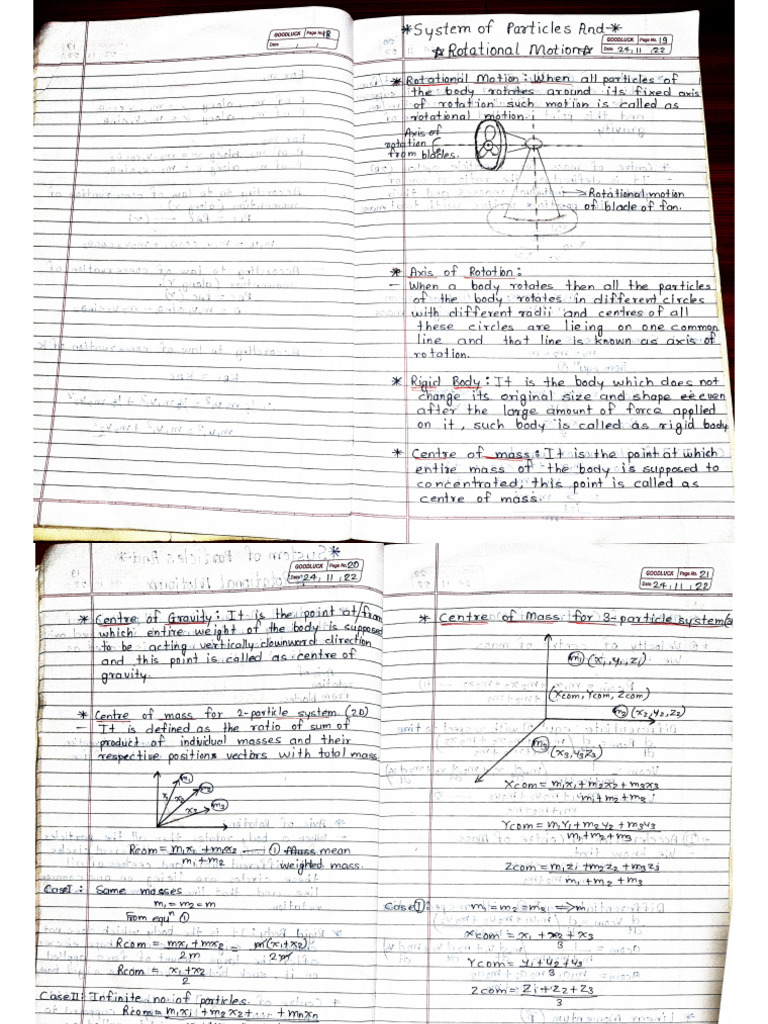 GOODLUCK Page No. 18
Date
*System of Particles And-*
☆Rotational Motion☆
GOODLUCK Page No. 19
Date 24, 11, 22
* Rotational Motion: When all particles of
the body rotates around its fixed axis
of rotation such motion is called as
rotational motion.
Axis of
rotation
from blades.
→Rotational motion
of blade of fan.
* Axis of Rotation:
- When a body rotates then all the particles
of the body rotates in different circles
with different radii and centres of all
these circles are lieing on one common
line and that line is known as axis of
rotation.
* Rigid Body: It is the body which does not
change its original size and shape even
after the large amount of force applied
on it, such body is called as rigid body
* Centre of mass: It is the point at which
entire mass of the body is supposed to
concentrated, this point is called as
centre of mass.
GOODLUCK Page No. 20
Date 24, 11, 22
* Centre of Gravity: It is the point at/from
which entire weight of the body is supposed
to be acting vertically downward direction
and this point is called as centre of
gravity.
* Centre of mass for 2-particle system (2D)
- It is defined as the ratio of sum of
product of individual masses and their
respective position vectors with total mass.
m1
m2
m3
x1 x2
x2
Rcom = m1x1 + m2x2 — ① Mass mean
m1 + m2 weighted mass.
Case I: Same masses
m1 = m2 = m
From equⁿ ①
Rcom = mx1 + mx2 = m(x1+x2)
2m 2m
Rcom = x1 + x2
2
Case II: Infinite no. of particles.
Rcom = m1x1 + m2x2 + mnxn
GOODLUCK Page No. 21
Date 24, 11, 22
* Centre of Mass for 3-particle system(3
m1 (x1, y1, z1)
(xcom, Ycom, Zcom)
m2 (x2, y2, z2)
m3 (x3, y3 z3)
Xcom = m1x1 + m2x2 + m3x3
m1 + m2 + m3
Ycom = m1y1 + m2y2 + m3y3
m1 + m2 + m3
Zcom = m1z1 + m2z2 + m3z3
m1 + m2 + m3
Case I: m1 = m2 = m3 => m
xcom = x1 + x2 + x3
3
Ycom = y1 + y2 + y3
3
Zcom = z1 + z2 + z3
3